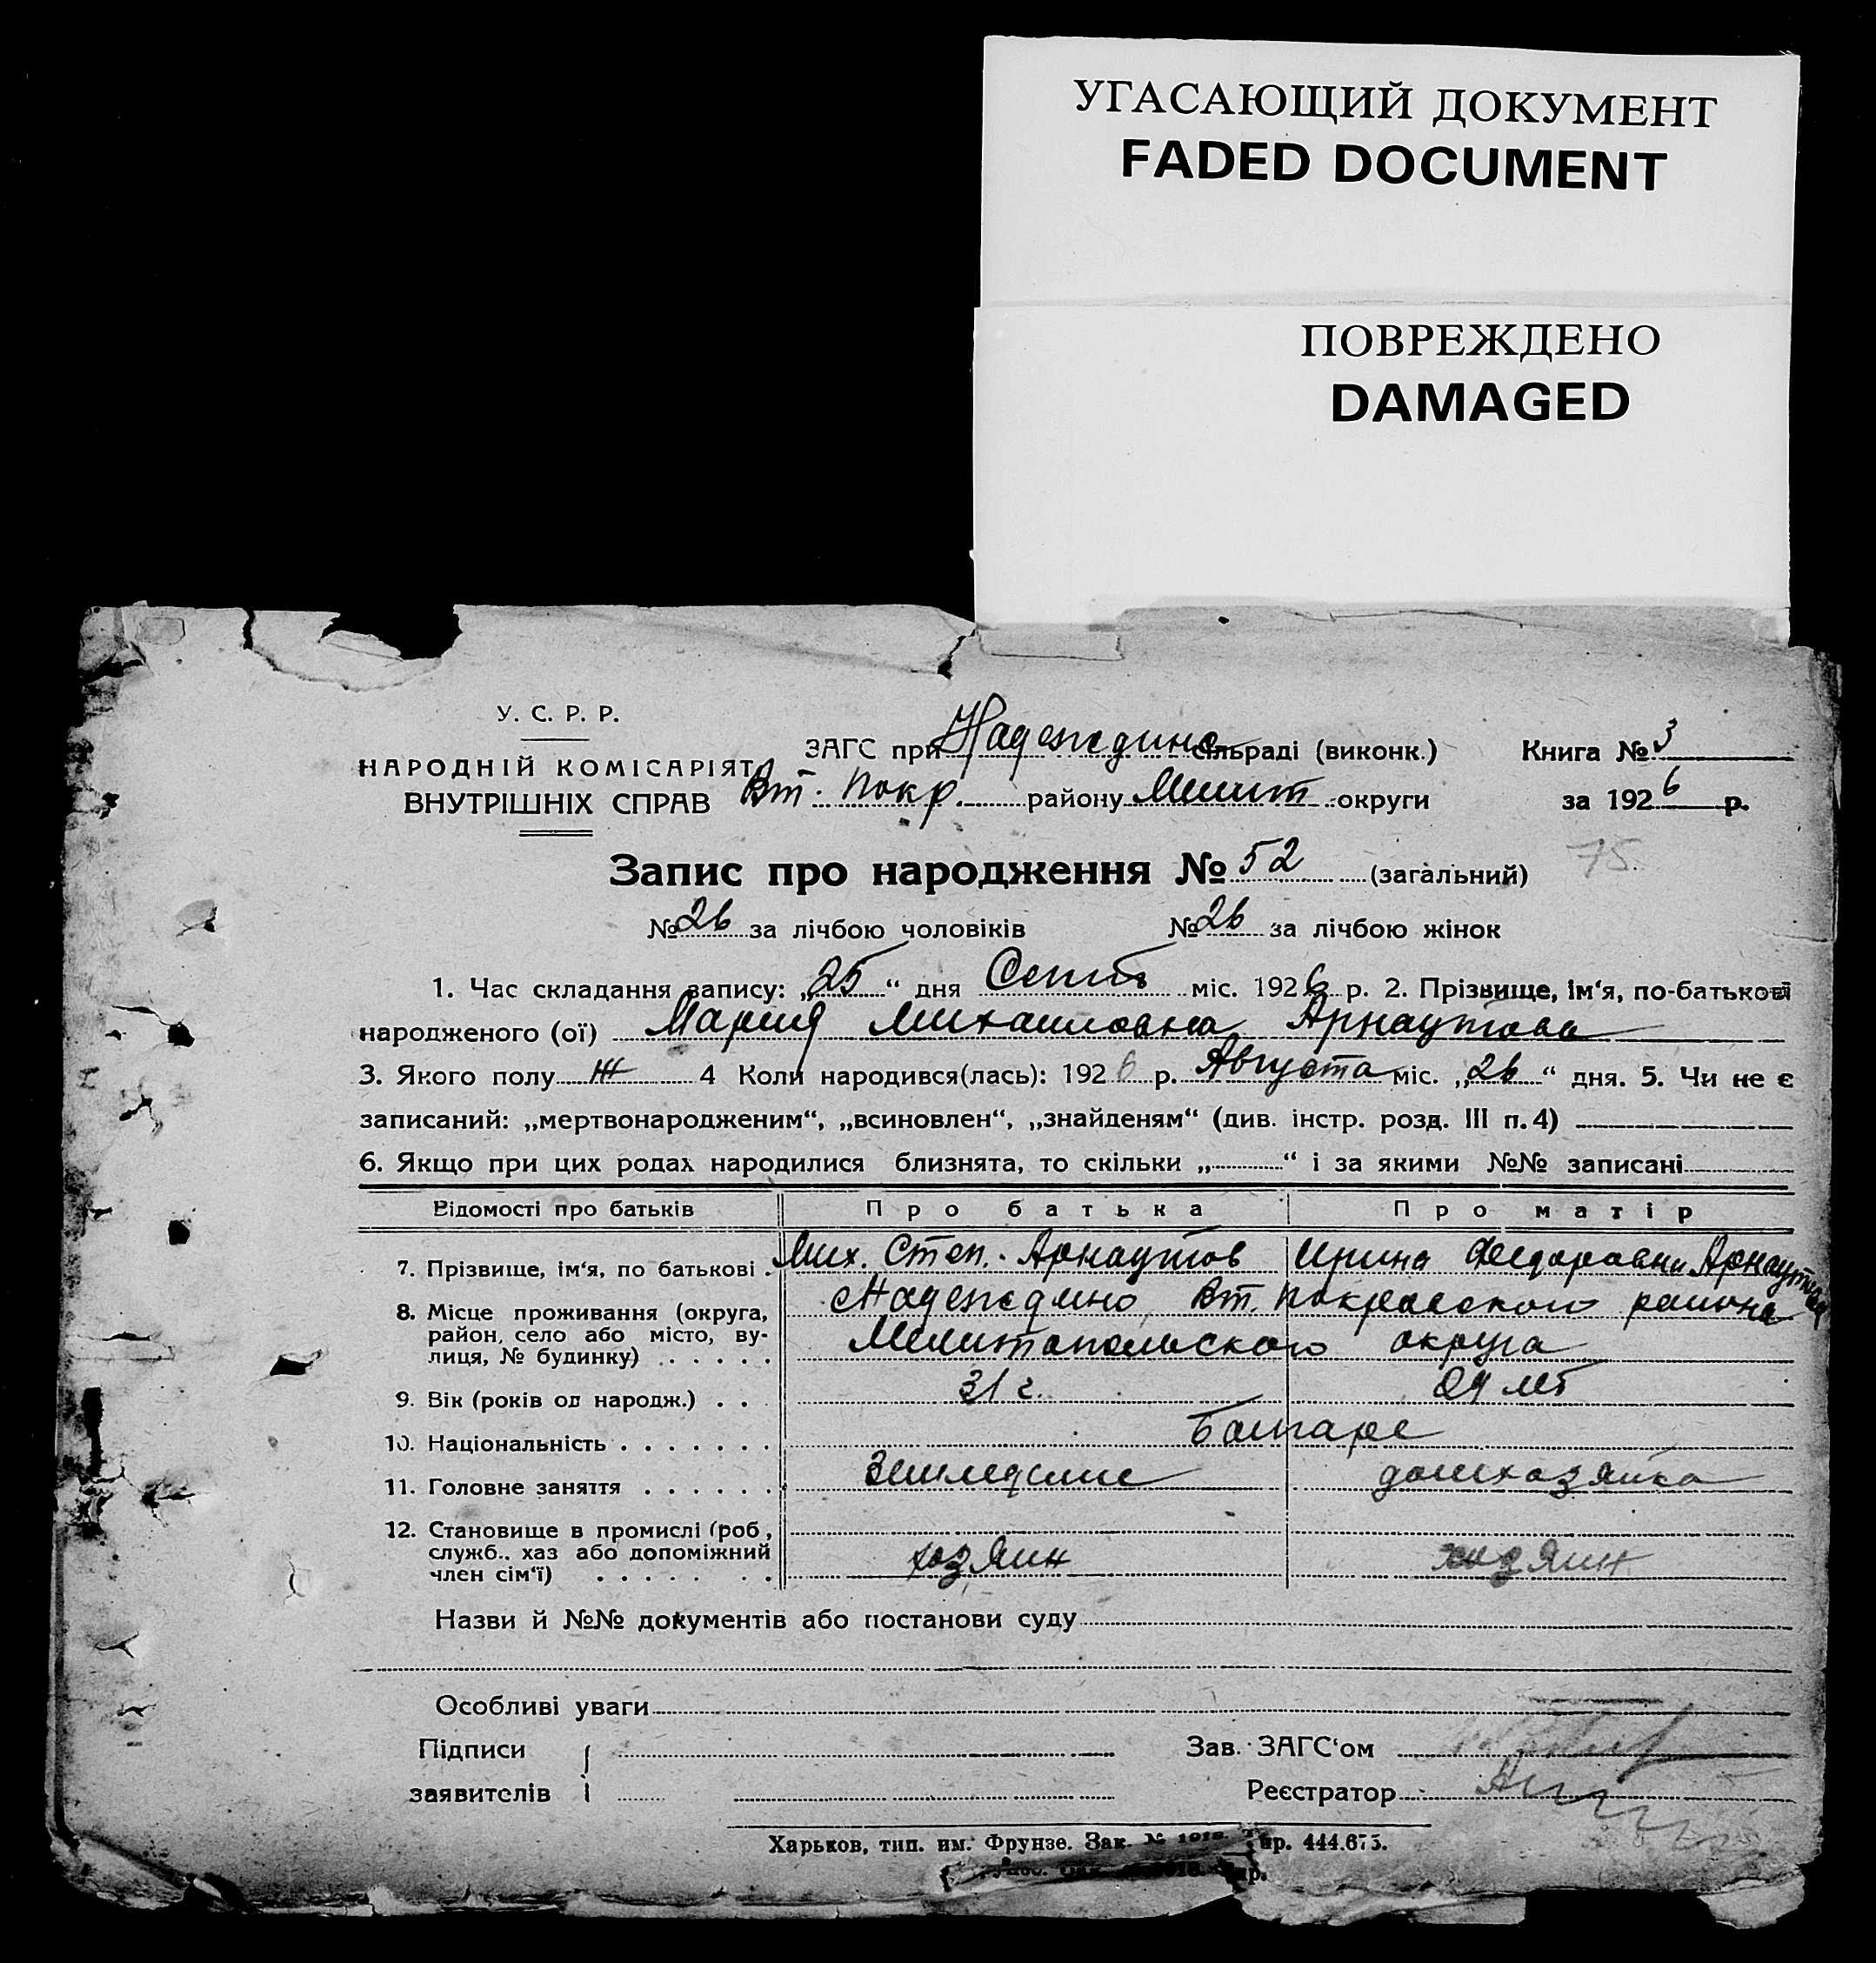 УГАСАЮЩИЙ ДОКУМЕНТ
FADED DOCUMENT
ПОВРЕЖДЕНО
DAMAGED
У. С. Р. Р.
НАРОДНІЙ КОМІСАРІЯТ
ВНУТРІШНІХ СПРАВ
ЗАГС при Надеждинс сільраді (виконк.)
Вт. Покр. району Мелит округи
Книга № 3
за 1926 р.
Запис про народження № 52 (загальний)
75.
№ 26 за лічбою чоловіків № 26 за лічбою жінок
1. Час складання запису: „25“ дня Сент міс. 1926 р. 2. Прізвище, ім‘я, по-батькові
народженого (ої) Мария Михайловна Арнаутова
3. Якого полу Ж 4 Коли народився(лась): 1926 р. Августа міс. „26“ дня. 5. Чи не є
записаний: „мертвонародженим“, „всиновлен“, „знайденям“ (див. інстр. розд. III п. 4)
6. Якщо при цих родах народилися близнята, то скільки „ “ і за якими №№ записані
Відомості про батьків Про батька Про матір
7. Прізвище, ім‘я, по батькові . Мих. Степ. Арнаутов Ирина Федоровна Арнаутова
8. Місце проживання (округа, Надеждино, Вт. Покровского района
район, село або місто, ву-
лиця, № будинку) . . . . . Мелитопольского округа
9. Вік (років од народж.) . . 31 г. 29 лет
10. Національність . . . . . . . Болгаре
11. Головне заняття . . . . . . Земледелие домхозяйка
12. Становище в промислі (роб,
служб.. хаз або допоміжний хозяин хозяин
член сім‘ї) . . . . . . .
Назви й №№ документів або постанови суду
Особливі уваги
Підписи
заявителів
Зав. ЗАГС‘ом
Реєстратор
Харьков, тип. им. Фрунзе. Зак. № 1018. Тир. 444.675.